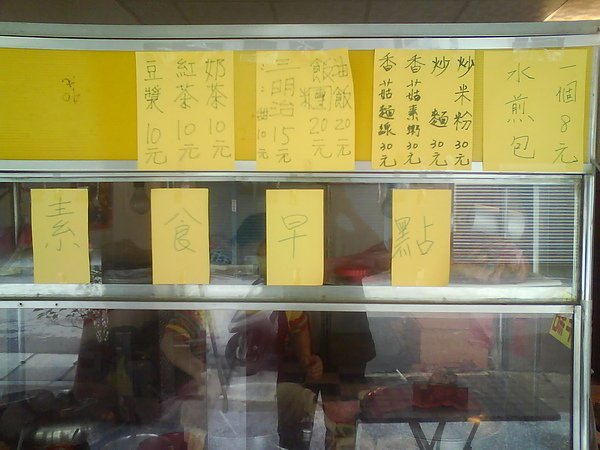 水煎包
一個8元
炒米粉30元
炒麵30元
香菇素粥30元
香菇麵線30元
油飯20元
飯糰20元
三明治15元
奶茶10元
紅茶10元
豆漿10元
素食早點